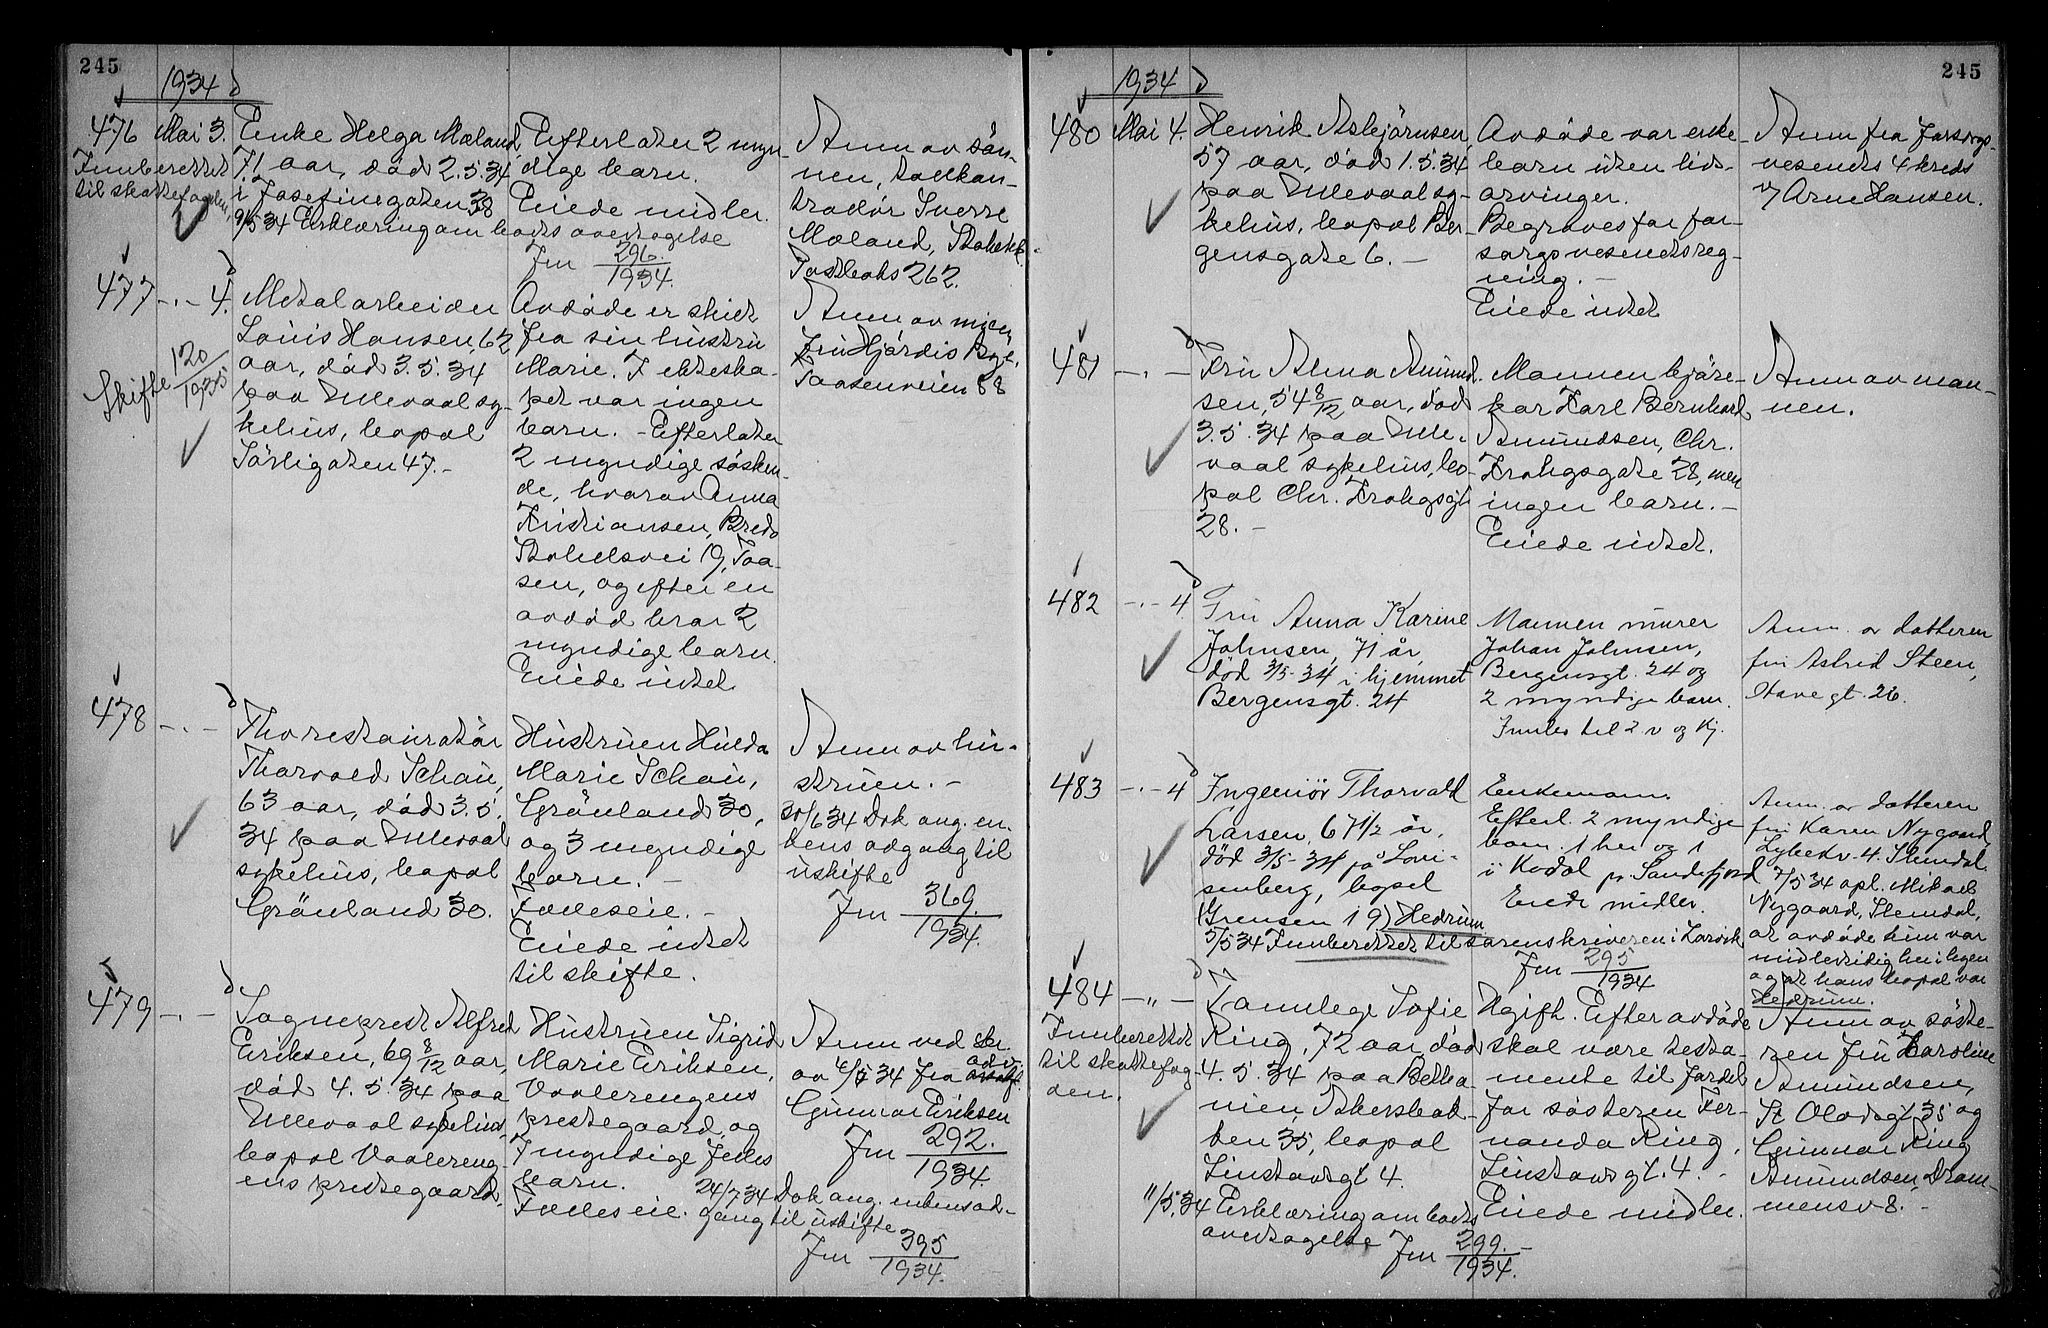 245
1934
476 Mai 3.
Innberettet
til skattefogden,
Enke Helga Mæland,
71 aar, död 2.5.34
i Josefinegaten 38
9/5 34 Erklæring om boets overtagelse
Jnr 296./1934.
Efterlater 2 myn-
dige barn.
Eiede midler.
Anm av sön-
nen, tollkon-
trollör Sverre
Mæland,
Postboks 262.
477 -.- 4.
Skifte 120/1935
Metalarbeider
Louis Hansen, 62
aar, död 3.5.34
paa Ullevaal sy-
kehus, bopæl
Sörligaten 47.-
Avdöde er skilt
fra sin hustru
Marie. I ekteska-
pet var ingen
barn. - Efterlater
2 myndige sösken-
de, hvorav Anna
Kristiansen, Bredo
Stabells vei 19, Taa-
sen, og efter en
avdöd bror 2
myndige barn.
Eiede intet
Anm av niecen
Fru Hjördis Bye,
Taasenveien 88
478 -.-
Fhv restauratör
Thorvald Schau,
63 aar, död 3.5.
34 paa Ullevaal
sykehus, bopæl
Grönland 30.
Hustruen Hulda
Marie Schau,
Grönland 30,
og 3 myndige
barn. -
Fælleseie. -
Eiede intet
til skifte.
Anm av hu-
struen. -
30/6 34 Dok ang. en-
kens adgang til
uskifte
Jnr 369./1934.
479 -.-
Sogneprest Alfred
Eriksen, 69 8/12 aar,
död 4.5.34 paa
Ullevaal sykehus,
bopæl Vaalereng-
ens prestegaard.
Hustruen Sigrid
Marie Eriksen,
Vaalerengens
prestegaard, og
7 myndige felles
barn.
Fælleseie.
Anm ved skr.
av 4/5 34 fra adv
Gunnar Eriksen
Jnr 292./1934.
24/7 34 Dok ang. enkens ad-
gang til uskifte
Jnr 395/1934.
245
1934
480 Mai 4.
Henrik Asbjörnsen,
57 aar, död 1.5.34
paa Ullevaal sy-
kehus, bopæl Ber-
gensgate 6. -
Avdöde var enke-
barn uten livs-
arvinger.
Begraves for for-
sorgsvesenets reg-
ning. -
Eiede intet
Anm fra Forsorgs-
vesenets 4 kreds
v/ Arne Hansen.
481 -.-
Fru Alma Amund-
sen, 54 8/12 aar, död
3.5.34 paa Ulle-
vaal sykehus, bo-
pæl Chr. Krohgsgt
28. -
Mannen kjöre-
kar Karl Bernhard
Amundsen, Chr.
Krohgsgate 28, men
ingen barn. -
Eiede intet.
Anm av man-
nen.
482 -.- 4.
Fru Anna Karine
Johnsen, 71 år,
död 3/5-34 i hjemmet
Bergensgt. 24
Mannen murer
Johan Johnsen,
Bergensgt. 24 og
2 myndige barn.
Innlev til 2 v og Kj.
Anm. av datteren
fru Astrid Steen,
gt. 26.
483 -.- 4
Ingeniör Thorvald
Larsen, 67 1/2 år,
död 3/5-34 på Lovi-
senberg, bopæl
(Grensen 19) Hedrum.
5/5 34 Innberettet til sorenskriveren i Larvik
Jnr 295/1934
Enkemann.
Efterl. 2 myndige
barn. 1 her og 1
i Kodal pr. Sandefjord
Eiede midler.
Anm. av datteren
fru Karen Nygaard
Lybekv. 4. Slemdal.
7/5 34 opl. Mikael
Nygaard, Slemdal,
at avdöde kun var
midlertidig her i byen
og at hans bopæl var
Hedrum.
484 -"-
Innberettet
til skattefog-
den.
Tannlege Sofie
Ring, 72 aar död
4.5.34 paa Betha-
nien, Akersbak-
ken 35, bopæl
Linstowsgt 4.
11/5.34 Erklæring om boets
overtagelse Jnr 299./1934.
Ugift. Efter avdöde
skal være testa-
mente til fordel
for sösteren Fer-
nanda Ring,
Linstowsgt. 4. -
Eiede midler.
Anm av söste-
ren fru Karoline
Amundsen,
St Olavsgt 35 og
Gunnar Ring
Amundsen, Dram-
mensv 8. -